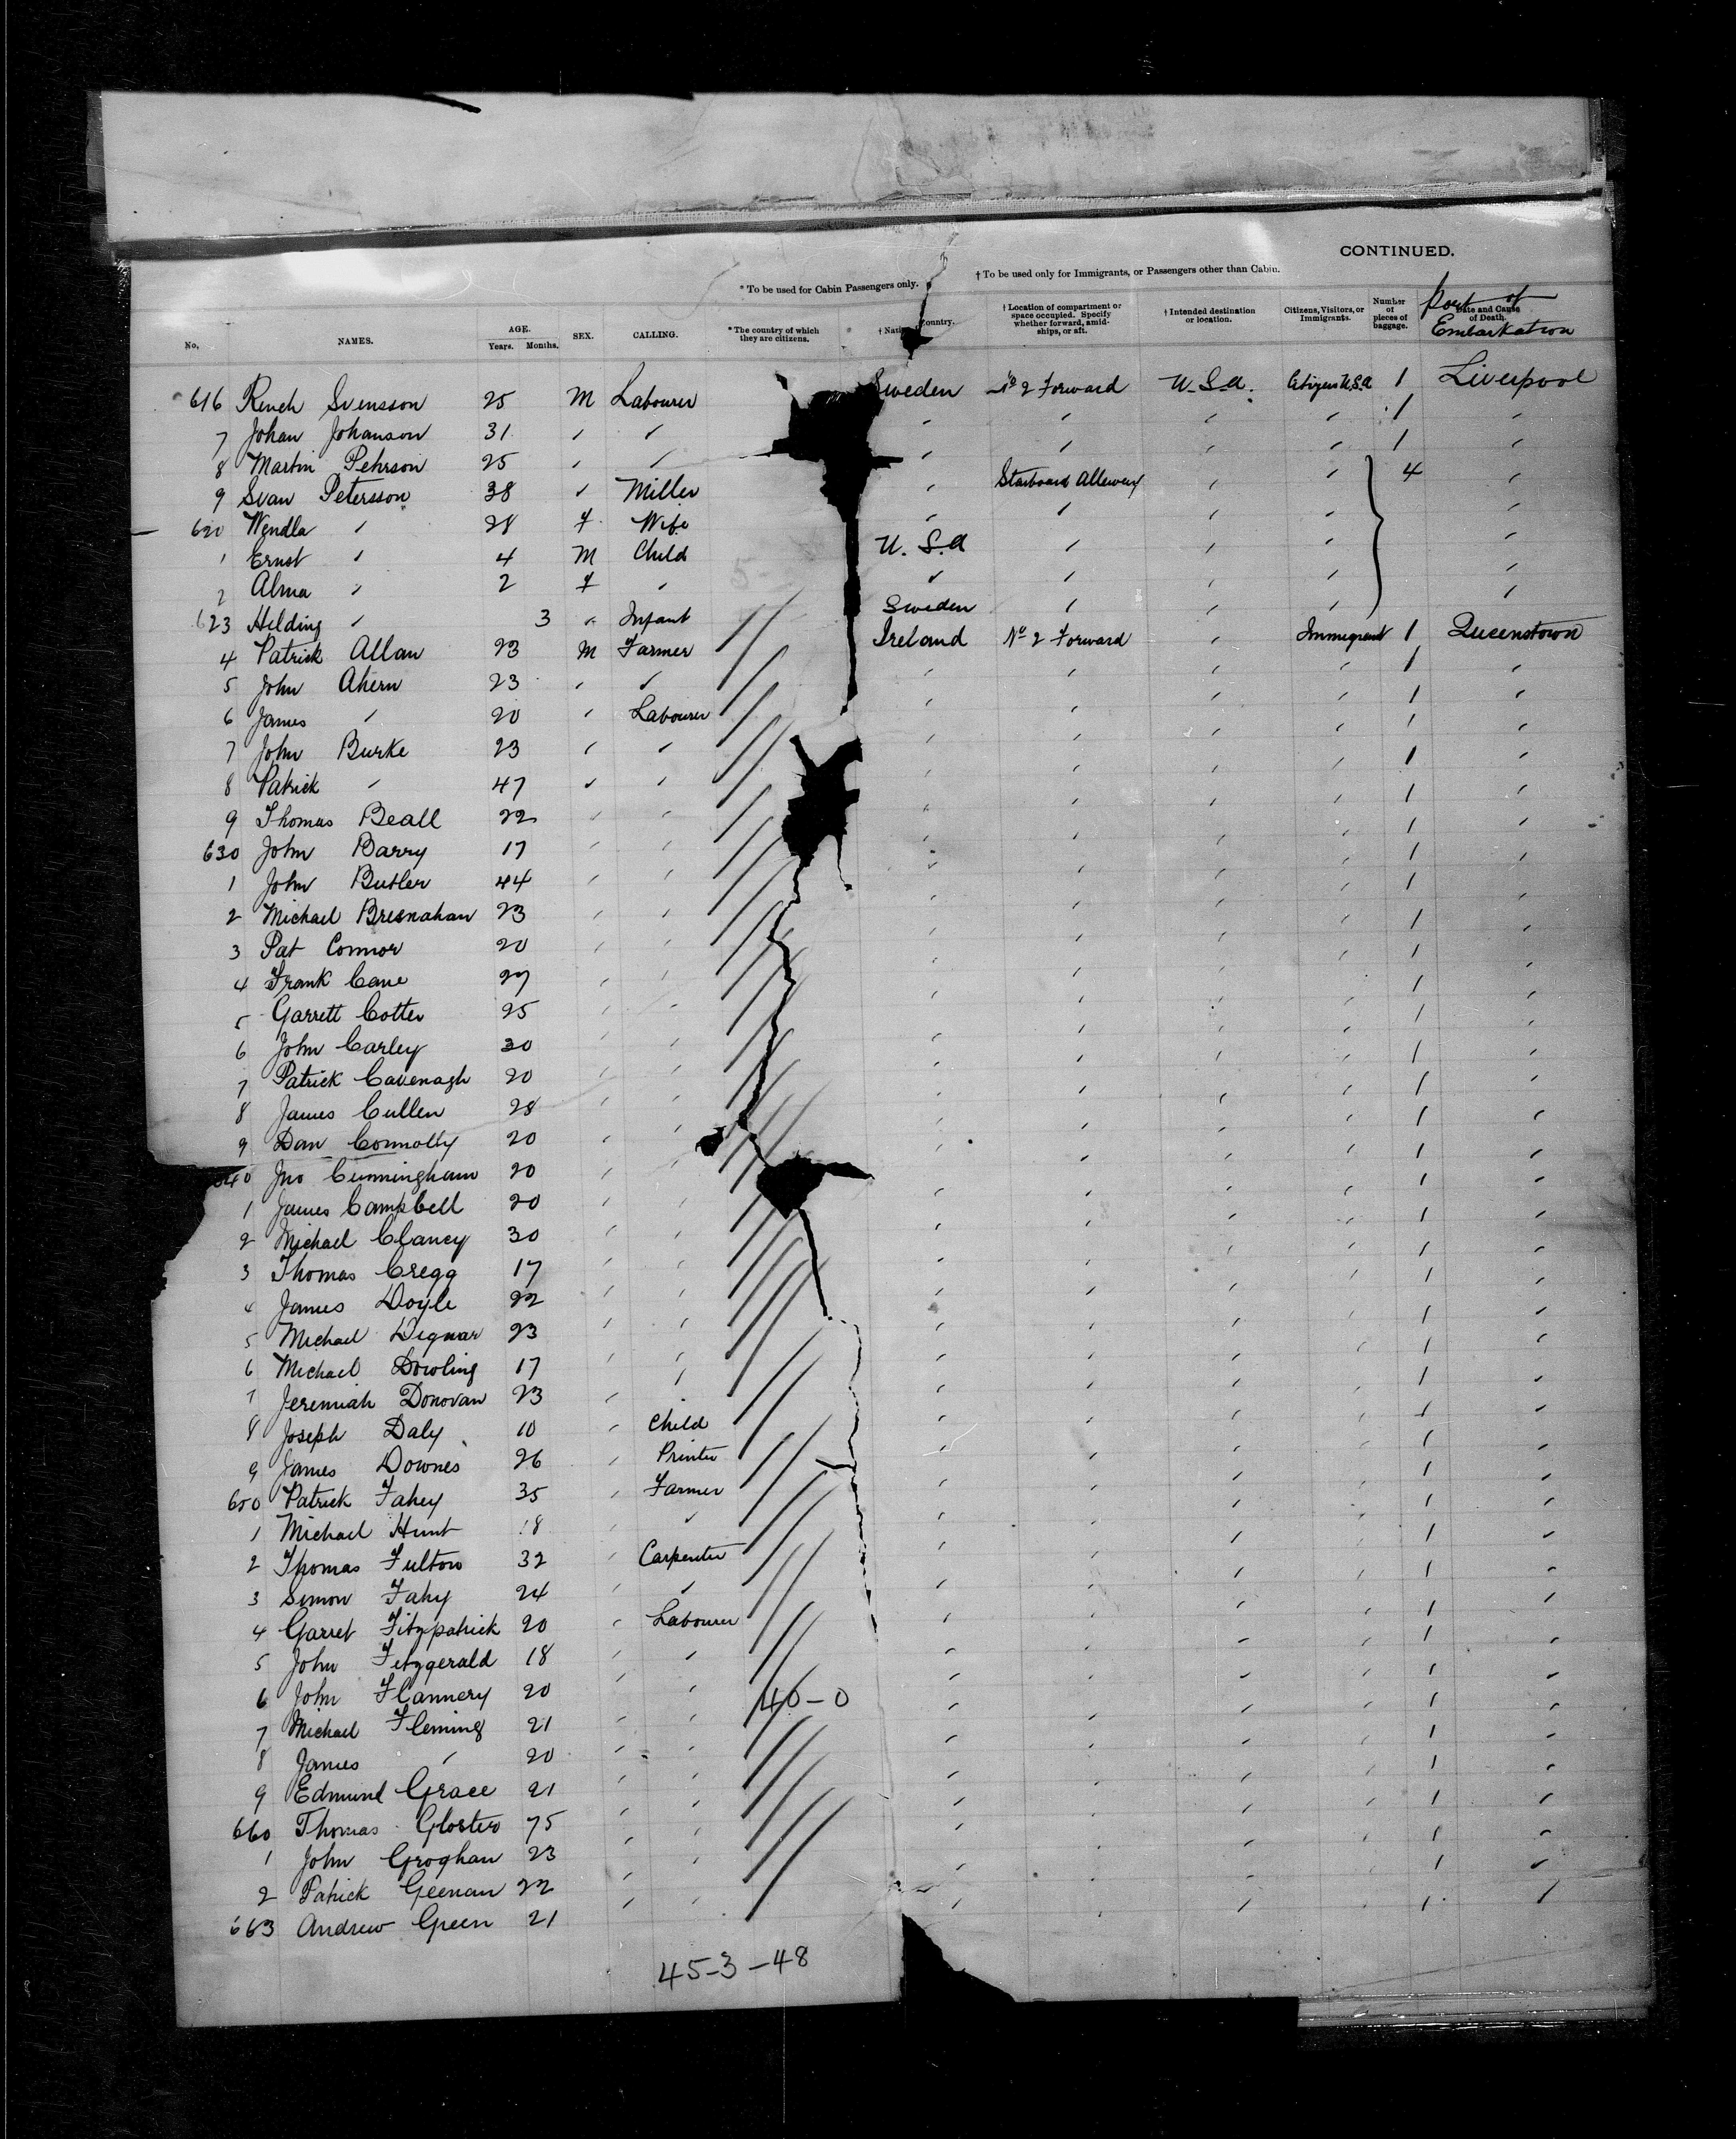 CONTINUED.
* To be used for Cabin Passengers only. † To be used only for Immigrants, or Passengers other than Cabin.
No. NAMES. AGE. Years. Months. SEX. CALLING. * The country of which they are citizens. Country. † Location of compartment or space occupied. Specify whether forward, amidships, or aft. † Intended destination or location. Citizens, Visitors, or Immigrants. Number of pieces of baggage. Date and Cause of Death. Port of Embarkation
616 Svensson 25 M Labourer Sweden No 2 Forward U.S.A. Citizen U.S.A 1 Liverpool
7 Johan Johanson 31 " " " " " " 1 "
8 Martin Pehrson 25 " " " " " " 1 "
9 Svan Petersson 38 " Miller " Starboard Alleway " " 4 "
620 Wendla " 28 f Wife " " " " "
1 Ernst " 4 M Child U.S.A " " " "
2 Alma " 2 f " " " " " "
623 Hilding " 3 " Infant Sweden " " " "
4 Patrick Allan 23 M Farmer Ireland No 2 Forward " Immigrant 1 Queenstown
5 John Ahern 23 " " " " " " 1 "
6 James " 20 " Labourer " " " " 1 "
7 John Burke 23 " " " " " " 1 "
8 Patrick " 47 " " " " " " 1 "
9 Thomas Beall 22 " " " " " " 1 "
630 John Barry 17 " " " " " " 1 "
1 John Butler 44 " " " " " " 1 "
2 Michael Bresnahan 23 " " " " " " 1 "
3 Pat Connor 20 " " " " " " 1 "
4 Frank Cane 27 " " " " " " 1 "
5 Garrett Cotter 25 " " " " " " 1 "
6 John Carley 30 " " " " " " 1 "
7 Patrick Cavenagh 20 " " " " " " 1 "
8 James Cullen 28 " " " " " " 1 "
9 Dan Connolly 20 " " " " " " 1 "
640 Jno Cunningham 20 " " " " " " 1 "
1 James Campbell 20 " " " " " " 1 "
2 Michael Clancy 30 " " " " " " 1 "
3 Thomas Cregg 17 " " " " " " 1 "
4 James Doyle 22 " " " " " " 1 "
5 Michael Dignar 23 " " " " " " 1 "
6 Michael Dowling 17 " " " " " " 1 "
7 Jeremiah Donovan 23 " " " " " " 1 "
8 Joseph Daly 10 " Child " " " " 1 "
9 James Downes 26 " Printer " " " " 1 "
650 Patrick Fahey 35 " Farmer " " " " 1 "
1 Michael Hunt 18 " " " " " " 1 "
2 Thomas Fulton 32 " Carpenter " " " " 1 "
3 Simon Fahy 24 " " " " " " 1 "
4 Garret Fitzpatrick 20 " Labourer " " " " 1 "
5 John Fitzgerald 18 " " " " " " 1 "
6 John Flannery 20 " " 40-0 " " " " 1 "
7 Michael Fleming 21 " " " " " " 1 "
8 James " 20 " " " " " " 1 "
9 Edmund Grace 21 " " " " " " 1 "
660 Thomas Gloster 75 " " " " " " 1 "
1 John Groghan 23 " " " " " " 1 "
2 Patrick Geenan 22 " " " " " " 1 "
663 Andrew Green 21 " " " " " " 1 "
45-3-48